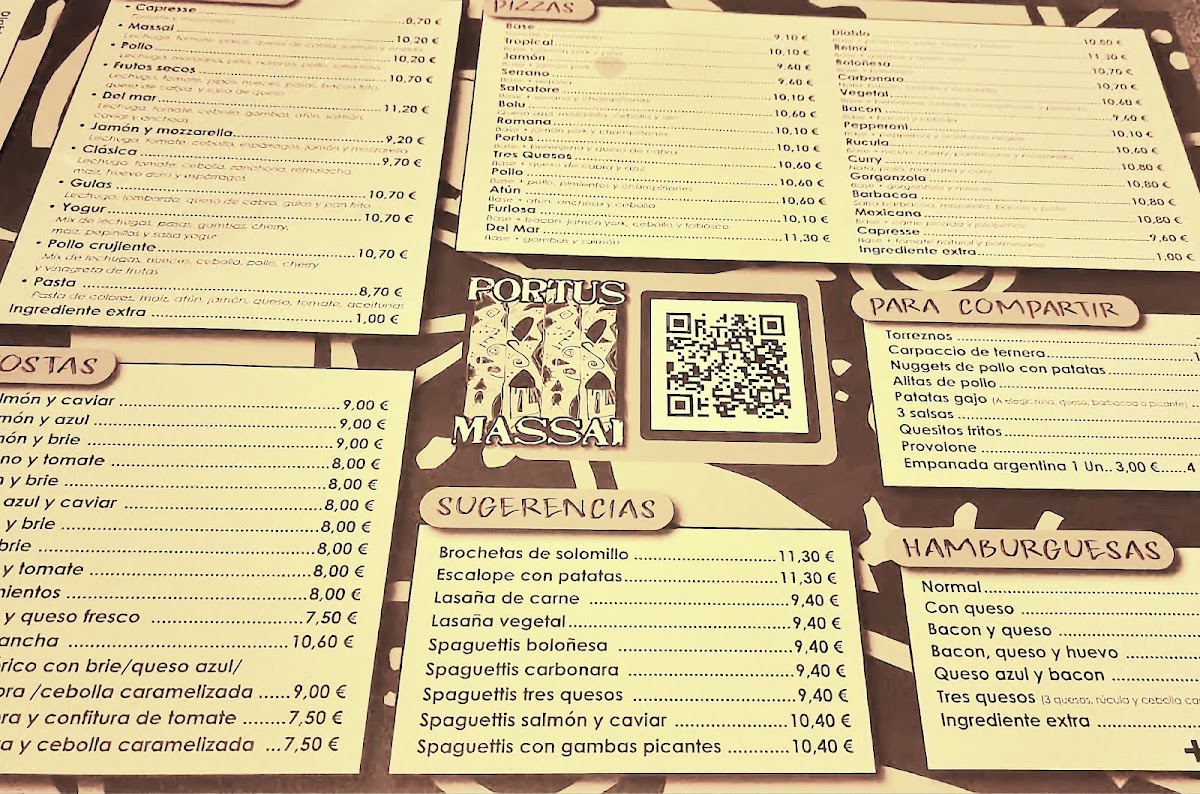 • Capresse 8,70 €
• Massai 10,20 €
• Pollo 10,20 €
• Frutos secos 10,70 €
• Del mar 11,20 €
Lechuga, tomate, cebolla, gambas, atún, salmón,
caviar y anchoas
• Jamón y mozzarella 9,20 €
Lechuga, tomate, cebolla, espárragos, jamón y mozzarella
• Clásica 9,70 €
Lechuga, tomate, cebolla, zanahoria, remolacha,
maíz, huevo duro y espárragos
• Gulas 10,70 €
Lechuga, lombarda, queso de cabra, gulas y pan frito
• Yogur 10,70 €
Mix de lechugas, pasas, gambas, cherry,
maíz, pepinillos y salsa yogur
• Pollo crujiente 10,70 €
Mix de lechugas, nueces, cebolla, pollo, cherry
y vinagreta de frutas
• Pasta 8,70 €
Pasta de colores, maíz, atún, jamón, queso, tomate, aceitunas
Ingrediente extra 1,00 €
PIZZAS
Base 9,10 €
Tropical 10,10 €
Jamón 9,60 €
Serrano 9,60 €
Salvatore 10,10 €
Bolu 10,60 €
Romana 10,10 €
Base + jamón york y champiñones
Portus 10,10 €
Tres Quesos 10,60 €
Base + queso de cabra y azul
Pollo 10,60 €
Base + pollo, pimientos y champiñones
Atún 10,60 €
Base + atún, anchoa y cebolla
Furiosa 10,10 €
Base + bacon, jamón york, cebolla y tabasco
Del Mar 11,30 €
Base + gambas y salmón
Diablo 10,60 €
Reina 11,30 €
Boloñesa 10,70 €
Carbonara 10,70 €
Vegetal 10,60 €
Bacon 9,60 €
Pepperoni 10,10 €
Rucula 10,60 €
Curry 10,80 €
Gorgonzola 10,80 €
Barbacoa 10,80 €
Mexicana 10,80 €
Capresse 9,60 €
Base + tomate natural y parmesano
Ingrediente extra 1,00 €
PORTUS
MASSAI
PARA COMPARTIR
Torreznos
Carpaccio de ternera
Nuggets de pollo con patatas
Alitas de pollo
Patatas gajo (A elegir: rosa, queso, barbacoa o picante)
3 salsas
Quesitos fritos
Provolone
Empanada argentina 1 Un..3,00 €......4
OSTAS
lmón y caviar 9,00 €
món y azul 9,00 €
món y brie 9,00 €
no y tomate 8,00 €
n y brie 8,00 €
azul y caviar 8,00 €
y brie 8,00 €
brie 8,00 €
y tomate 8,00 €
mientos 8,00 €
y queso fresco 7,50 €
ancha 10,60 €
érico con brie/queso azul/
bra /cebolla caramelizada ......9,00 €
bra y confitura de tomate ........7,50 €
ra y cebolla caramelizada ...7,50 €
SUGERENCIAS
Brochetas de solomillo 11,30 €
Escalope con patatas 11,30 €
Lasaña de carne 9,40 €
Lasaña vegetal 9,40 €
Spaguettis boloñesa 9,40 €
Spaguettis carbonara 9,40 €
Spaguettis tres quesos 9,40 €
Spaguettis salmón y caviar 10,40 €
Spaguettis con gambas picantes 10,40 €
HAMBURGUESAS
Normal
Con queso
Bacon y queso
Bacon, queso y huevo
Queso azul y bacon
Tres quesos (3 quesos, rúcula y cebolla ca
Ingrediente extra
+